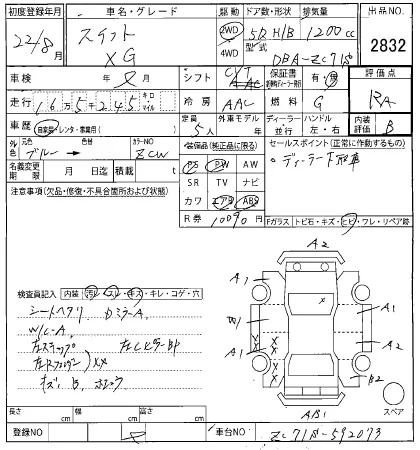 初度登録年月 車名・グレード 駆動 ドア数・形状 排気量 出品NO.
22/8月 スイフト XG 2WD 4WD 5D H/B 1200cc 2832
型式 DBA-ZC71S
車検 年 月 シフト CVT 保証書 有・無 評価点
走行 16万5千245 キロ マイル 冷房 AAC 燃料 G RA
車歴 自家用・レンタ・事業用 定員 5人 外車モデル 年 ディーラー・並行 ハンドル 左・右 内装評価 B
外色 元色 ブルー 色替 カラーNO ZCW
装備品(純正品に限る) セールスポイント(正常に作動するもの)
名義変更期限 月 日迄 積載 t PS PW AW
SR TV ナビ
注意事項(欠品・修復・不具合箇所および状態) カワ エアB ABS
・ディーラー下取車
R券 10090円
Fガラス トビ石・キズ・ヒビ・ワレ・リペア跡
検査員記入 内装 汚レ・スレ・キズ・キレ・コゲ・穴
シートヘタリ
W/C-A
左ステップ
XX
キズ、B、
A2
A1
W1
A1
A1
A2
B2
AB1
スペア
長さ cm 幅 cm 高さ cm
登録NO 車台NO ZC71S-592073